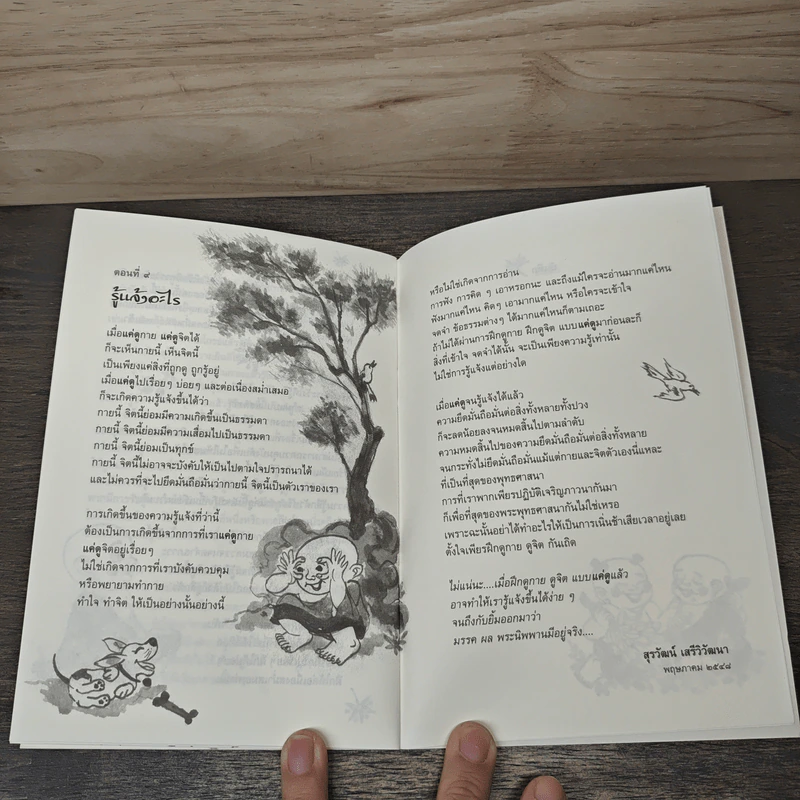 ตอนที่ ๙
รู้แจ้งอะไร
เมื่อแค่ดูกาย แค่ดูจิตได้
ก็จะเห็นกายนี้ เห็นจิตนี้
เป็นเพียงแค่สิ่งที่ถูกดู ถูกรู้อยู่
เมื่อแค่ดูไปเรื่อยๆ บ่อยๆ และต่อเนื่องสม่ำเสมอ
ก็จะเกิดความรู้แจ้งขึ้นได้ว่า
กายนี้ จิตนี้ย่อมมีความเกิดขึ้นเป็นธรรมดา
กายนี้ จิตนี้ย่อมมีความเสื่อมไปเป็นธรรมดา
กายนี้ จิตนี้ย่อมเป็นทุกข์
กายนี้ จิตนี้ไม่อาจจะบังคับให้เป็นไปตามใจปรารถนาได้
และไม่ควรที่จะไปยึดมั่นถือมั่นว่ากายนี้ จิตนี้เป็นตัวเราของเรา
การเกิดขึ้นของความรู้แจ้งที่ว่านี้
ต้องเป็นการเกิดขึ้นจากการที่เราแค่ดูกาย
แค่ดูจิตอยู่เรื่อยๆ
ไม่ใช่เกิดจากการที่เราบังคับควบคุม
หรือพยายามทำกาย
ทำใจ ทำจิต ให้เป็นอย่างนั้นอย่างนี้
หรือไม่ใช่เกิดจากการอ่าน
การฟัง การคิด ๆ เอาหรอกนะ และถึงแม้ใครจะอ่านมากแค่ไหน
ฟังมากแค่ไหน คิดๆ เอามากแค่ไหน หรือใครจะเข้าใจ
จดจำ ข้อธรรมต่างๆ ได้มากแค่ไหนก็ตามเถอะ
ถ้าไม่ได้ผ่านการฝึกดูกาย ฝึกดูจิต แบบแค่ดูมาก่อนละก็
สิ่งที่เข้าใจ จดจำได้นั้น จะเป็นเพียงความรู้เท่านั้น
ไม่ใช่การรู้แจ้งแต่อย่างใด
เมื่อแค่ดูจนรู้แจ้งได้แล้ว
ความยึดมั่นถือมั่นต่อสิ่งทั้งหลายทั้งปวง
ก็จะลดน้อยลงจนหมดสิ้นไปตามลำดับ
ความหมดสิ้นไปของความยึดมั่นถือมั่นต่อสิ่งทั้งหลาย
จนกระทั่งไม่ยึดมั่นถือมั่นแม้แต่กายและจิตตัวเองนี่แหละ
ที่เป็นที่สุดของพุทธศาสนา
การที่เราพากเพียรปฏิบัติเจริญภาวนากันมา
ก็เพื่อที่สุดของพระพุทธศาสนากันไม่ใช่เหรอ
เพราะฉะนั้นอย่าได้ทำอะไรให้เป็นการเนิ่นช้าเสียเวลาอยู่เลย
ตั้งใจเพียรฝึกดูกาย ดูจิต กันเถิด
ไม่แน่นะ....เมื่อฝึกดูกาย ดูจิต แบบแค่ดูแล้ว
อาจทำให้เรารู้แจ้งขึ้นได้ง่าย ๆ
จนถึงกับยิ้มออกมาว่า
มรรค ผล พระนิพพานมีอยู่จริง....
สุรวัฒน์ เสรีวิวัฒนา
พฤษภาคม ๒๕๔๘